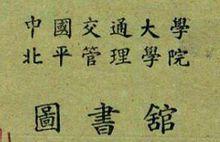 中國交通大學
北平管理學院
圖書舘